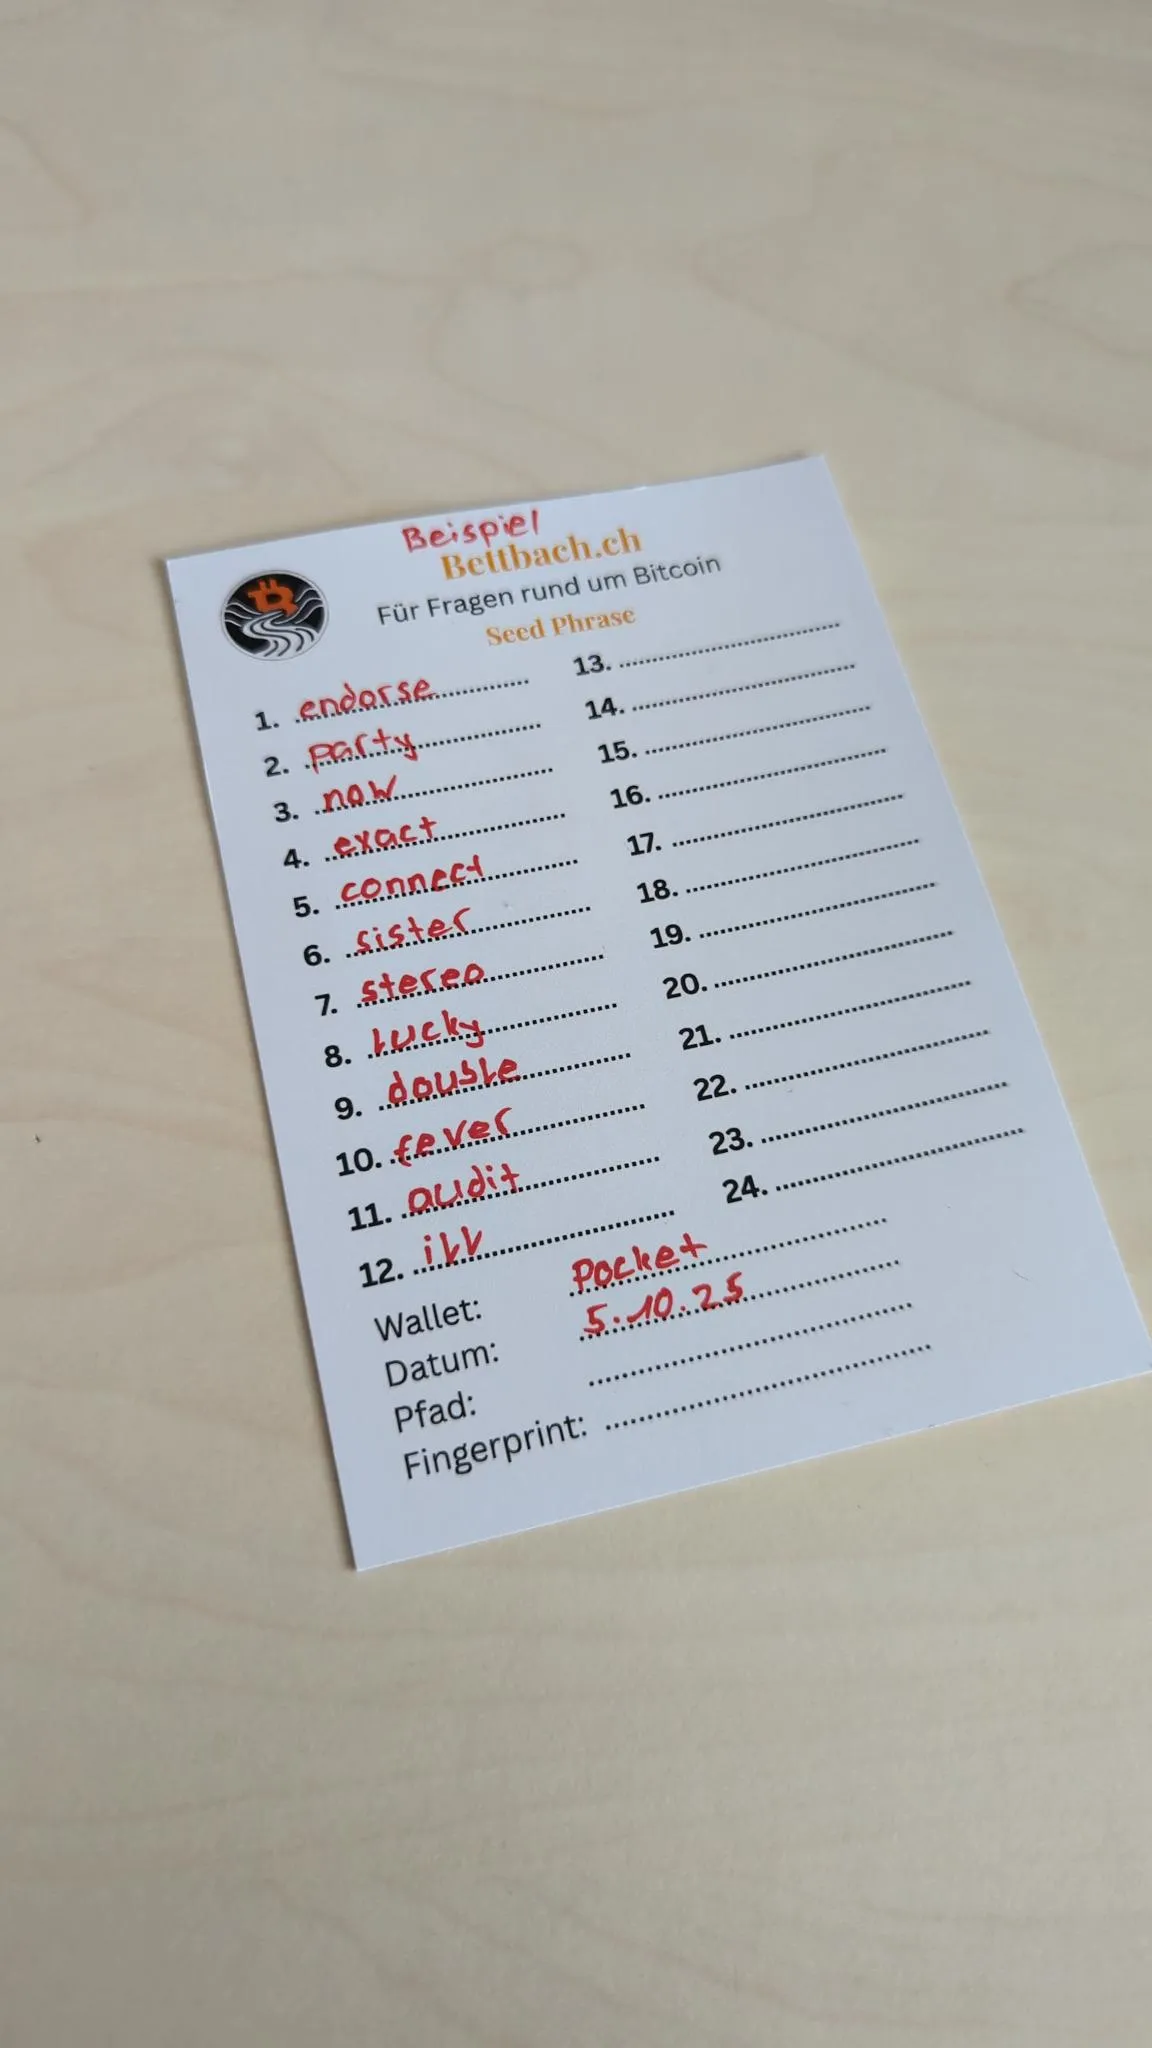 Beispiel
Bettbach.ch
Für Fragen rund um Bitcoin
Seed Phrase
1. endorse
2. party
3. now
4. exact
5. connect
6. sister
7. stereo
8. lucky
9. double
10. fever
11. audit
12. ill
13.
14.
15.
16.
17.
18.
19.
20.
21.
22.
23.
24.
Wallet: Pocket
Datum: 5.10.25
Pfad:
Fingerprint: